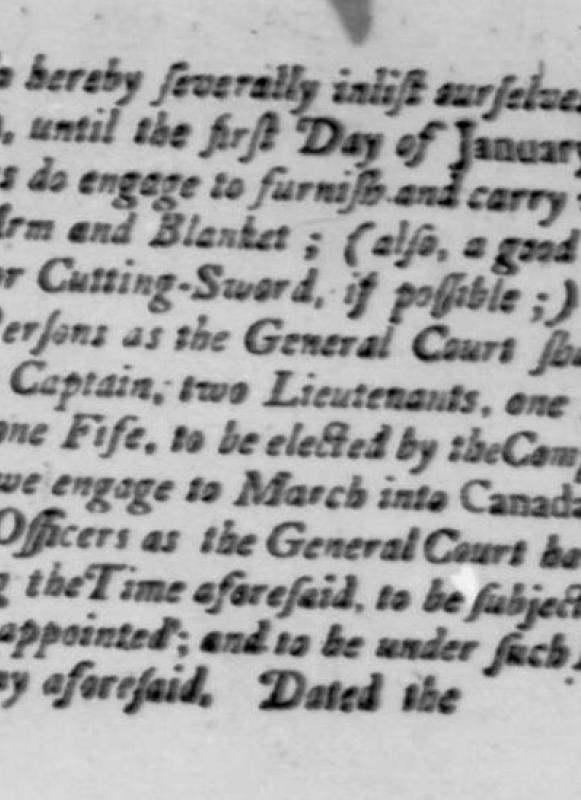 hereby ſeverally inliſt ourſelves
, until the firſt Day of January
s do engage to furniſh and carry
Arm and Blanket ; (alſo, a good
or Cutting-Sword, if poſſible ;)
Perſons as the General Court ſha
Captain, two Lieutenants, one
one Fife, to be elected by theCom
we engage to March into Canada
Officers as the General Court ha
g theTime aforeſaid, to be ſubject
appointed ; and to be under ſuch
ay aforeſaid. Dated the